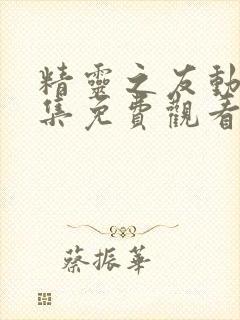 精靈之友動
集免費觀看
蔡振華